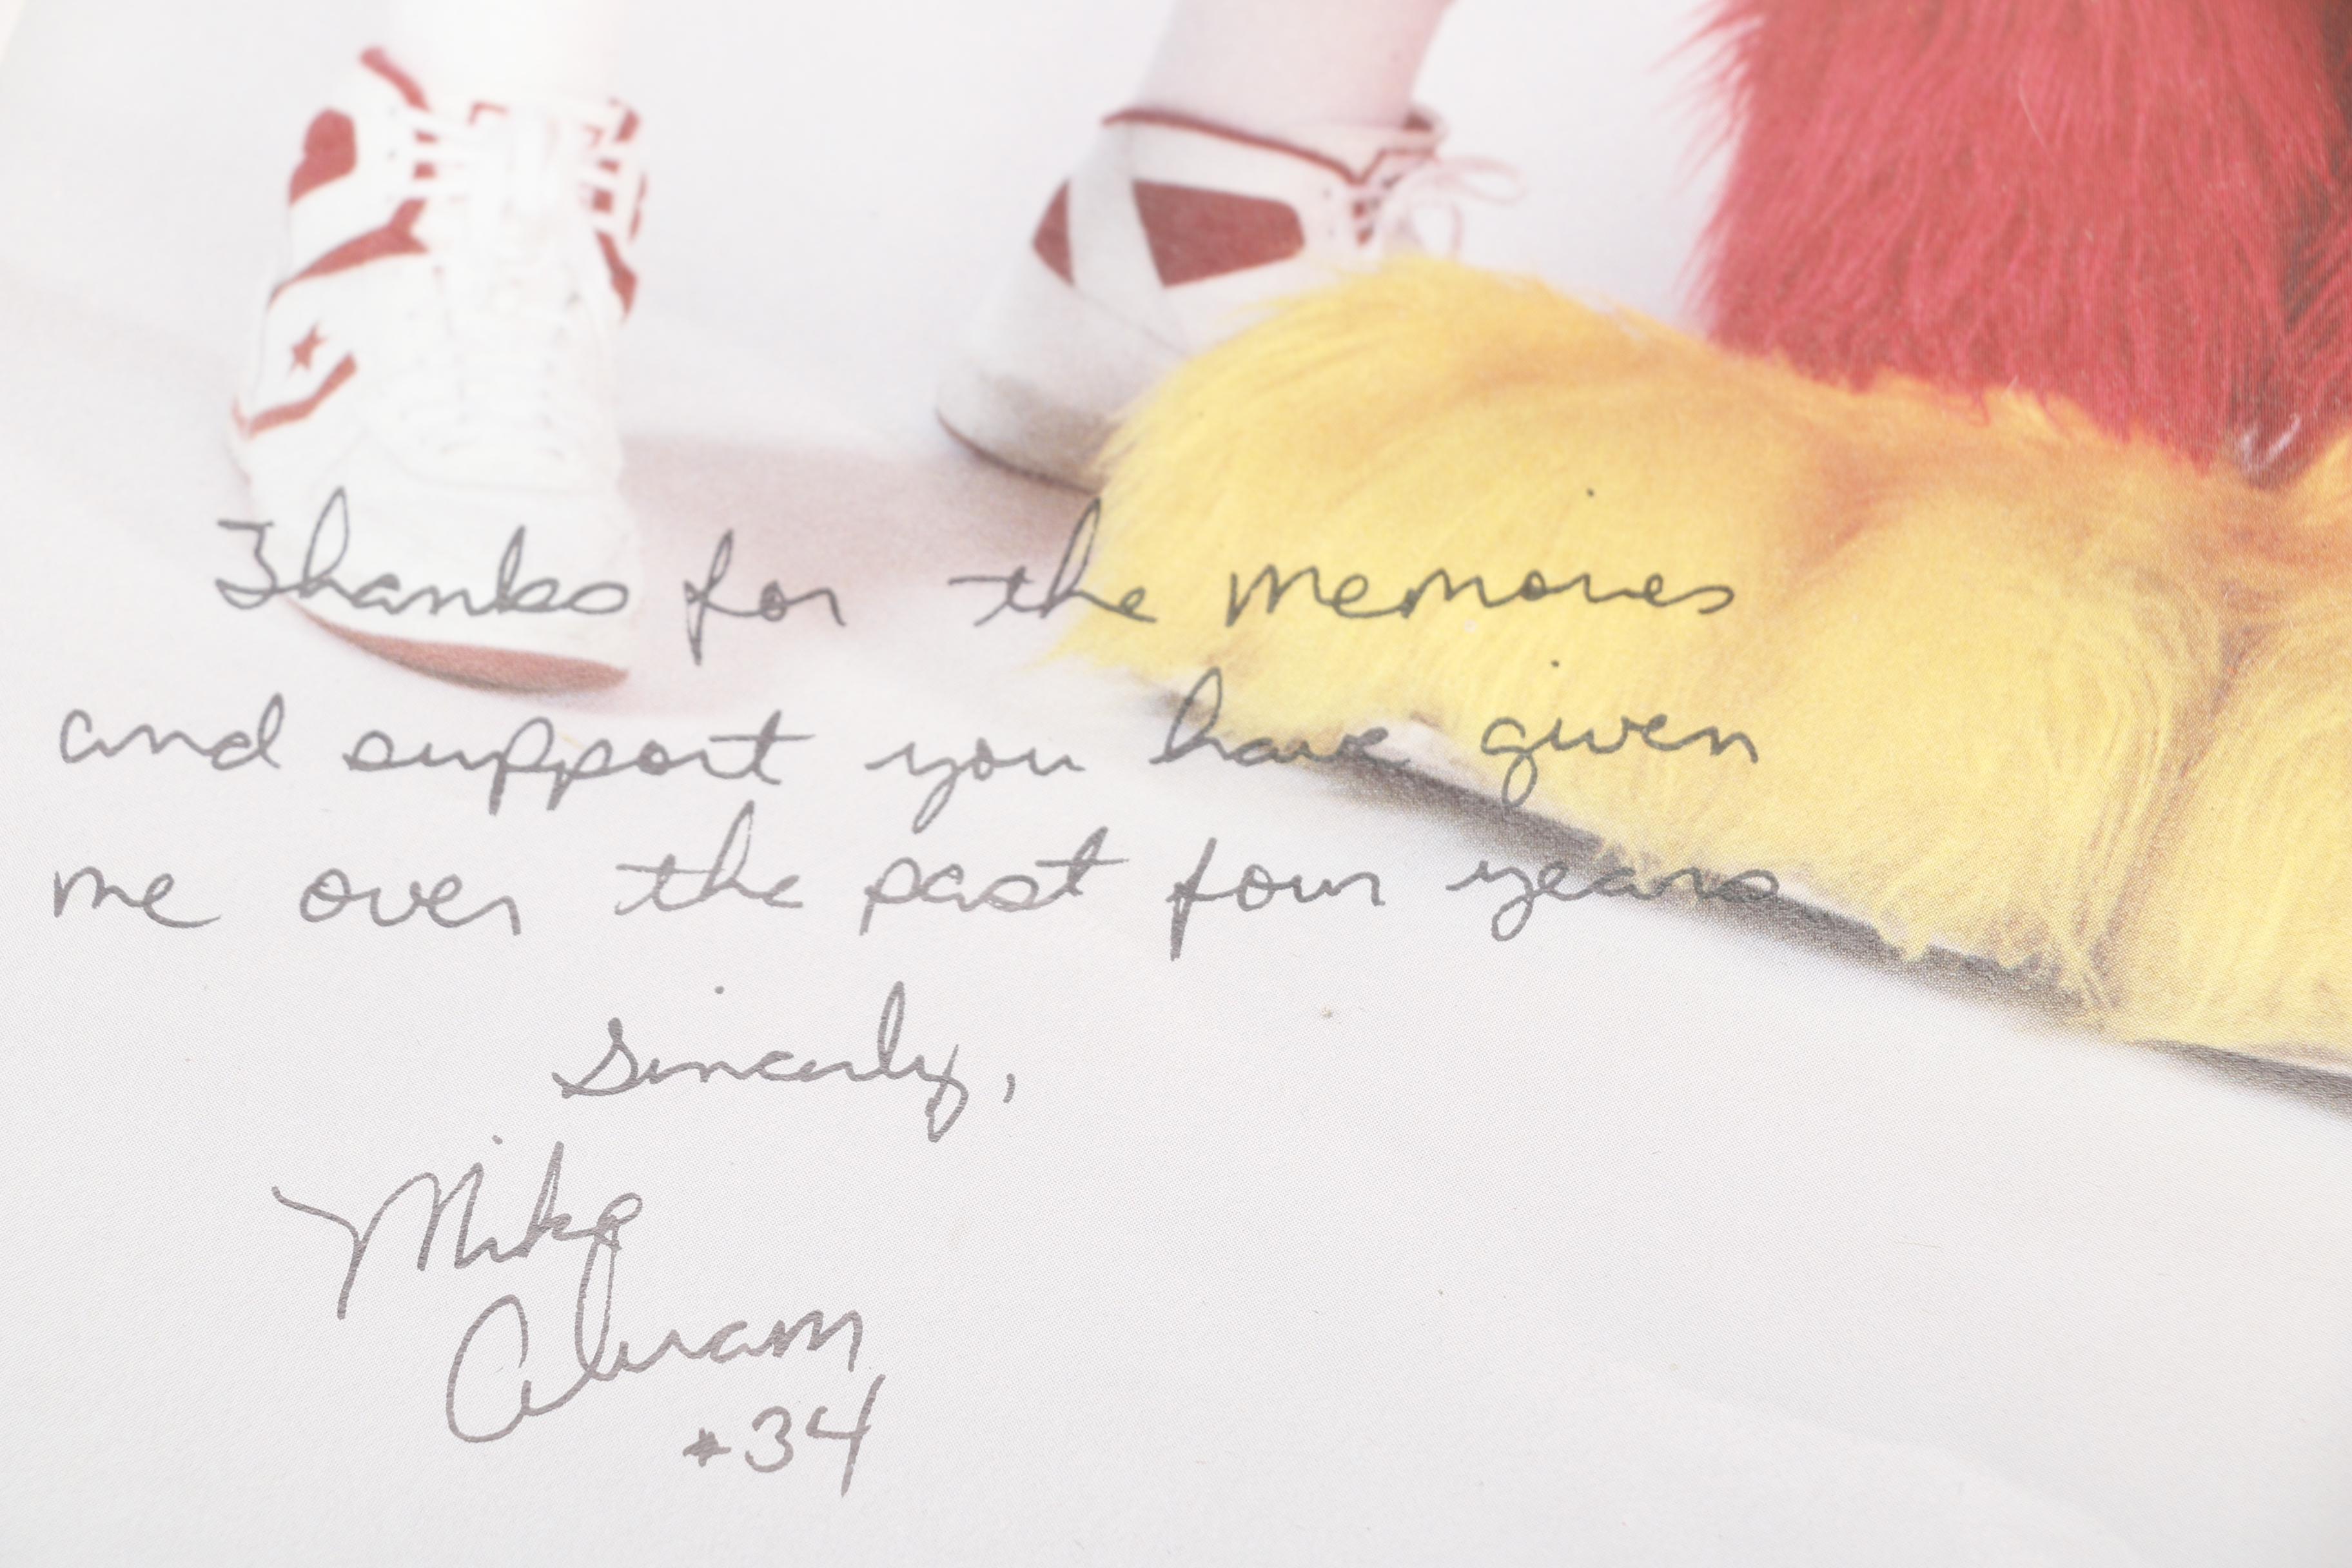 Thanks for the memories
and support you have given
me over the past four years
Sincerly,
Mike
Abram
#34